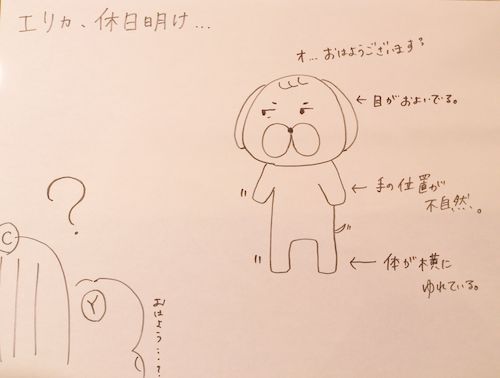 エリカ、休日明け...
オ...おはようございます。
← 目がおよいでる。
← 手の位置が
不自然。
← 体が横に
ゆれている。
?
C
Y
おはよう...?